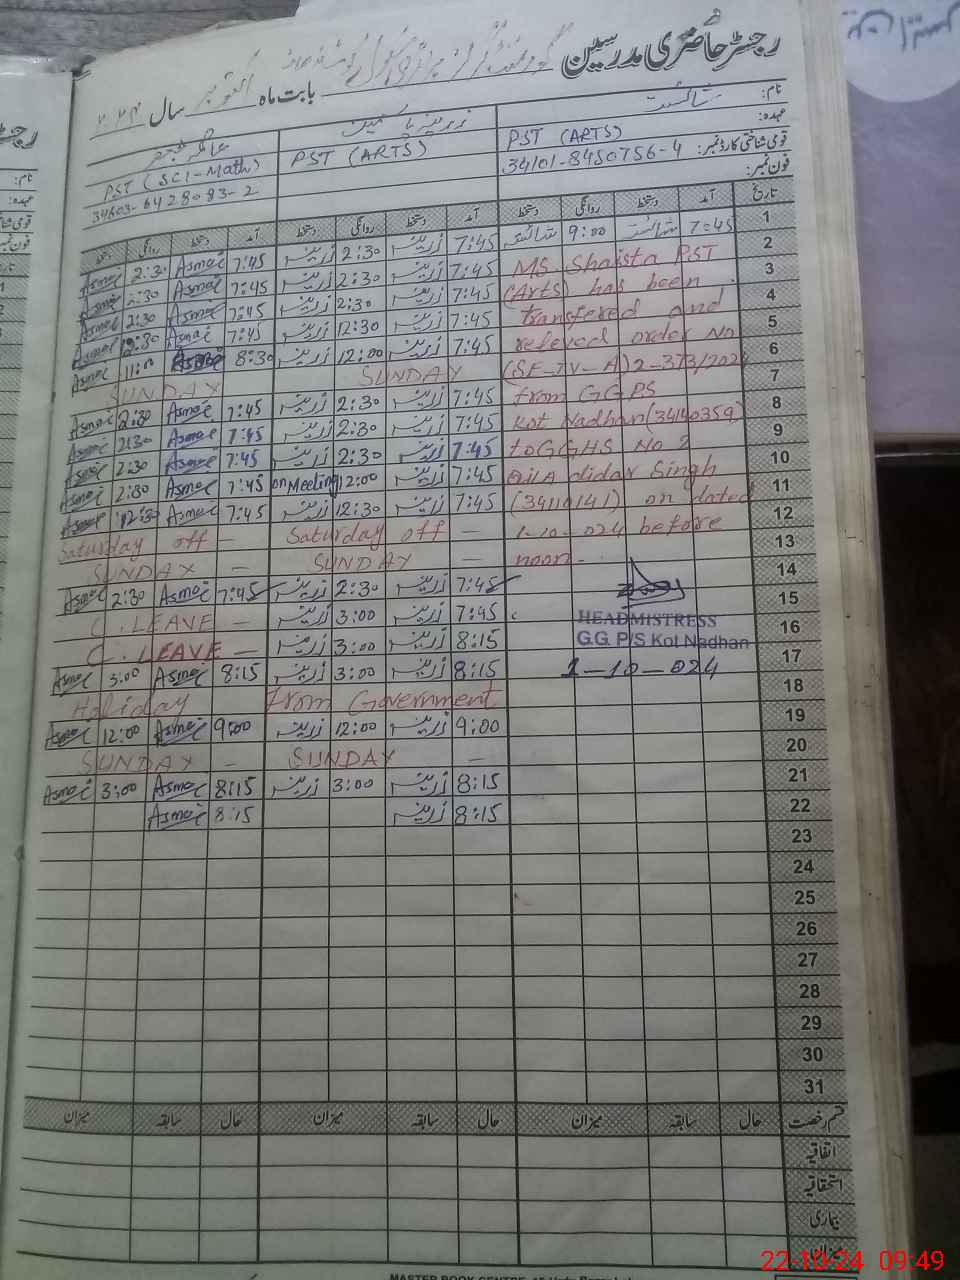 رجسٹر حاضری مدرسین گورنمنٹ گرلز پرائمری سکول کوٹ
بابت ماہ اکتوبر سال ۲۰۲۴
نام: شائستہ زرینہ یاسمین
عہدہ: PST (ARTS) PST (ARTS) PST (SCI-Math)
قومی شناختی کارڈ نمبر: 34101-8450756-4 34603-6428083-2
فون نمبر:
تاریخ آمد دستخط روانگی دستخط آمد دستخط روانگی دستخط آمد دستخط روانگی دستخط
1 7:45 شائستہ 9:00 شائستہ 7:45 زرینہ 2:30 زرینہ 7:45 Asmac 2:30 Asmac
2 MS. Shaista PST 7:45 زرینہ 2:30 زرینہ 7:45 Asmac 2:30 Asmac
3 (Arts) has been 7:45 زرینہ 2:30 زرینہ 7:45 Asmac 2:30 Asmac
4 transfered and 7:45 زرینہ 12:30 زرینہ 7:45 Asmac 12:30 Asmac
5 releved order No 7:45 زرینہ 12:00 زرینہ 8:30 Asmac 11:00 Asmac
6 (SE-IV-A)2-373/2024 SUNDAY SUNDAY
7 from GGPS 7:45 زرینہ 2:30 زرینہ 7:45 Asmac 2:30 Asmac
8 Kot Nadhan(34140359) 7:45 زرینہ 2:30 زرینہ 7:45 Asmac 2:30 Asmac
9 to GGHS No 2 7:45 زرینہ 2:30 زرینہ 7:45 Asmac 2:30 Asmac
10 QilA didar Singh 7:45 زرینہ 12:00 on Meeting 7:45 Asmac 2:30 Asmac
11 (34110141) on dated 7:45 زرینہ 12:30 زرینہ 7:45 Asmac 12:30 Asmac
12 1-10-024 before Saturday off — Saturday off —
13 noon. SUNDAY — SUNDAY —
14 7:45 زرینہ 2:30 زرینہ 7:45 Asmac 2:30 Asmac
15 HEADMISTRESS 7:45 زرینہ 3:00 زرینہ C. LEAVE —
16 G.G P/S Kot Nadhan 8:15 زرینہ 3:00 زرینہ C. LEAVE —
17 1-10-024 8:15 زرینہ 3:00 زرینہ 8:15 Asmac 3:00 Asmac
18 Holiday From Government
19 9:00 زرینہ 12:00 زرینہ 9:00 Asmac 12:00 Asmac
20 SUNDAY — SUNDAY —
21 8:15 زرینہ 3:00 زرینہ 8:15 Asmac 3:00 Asmac
22 8:15 زرینہ 8:15 Asmac
23
24
25
26
27
28
29
30
31
قسم رخصت حال سابقہ میزان حال سابقہ میزان حال سابقہ میزان
اتفاقیہ
استحقاقیہ
بیماری
میزان
MASTER BOOK CENTRE
22-10-24 09:49